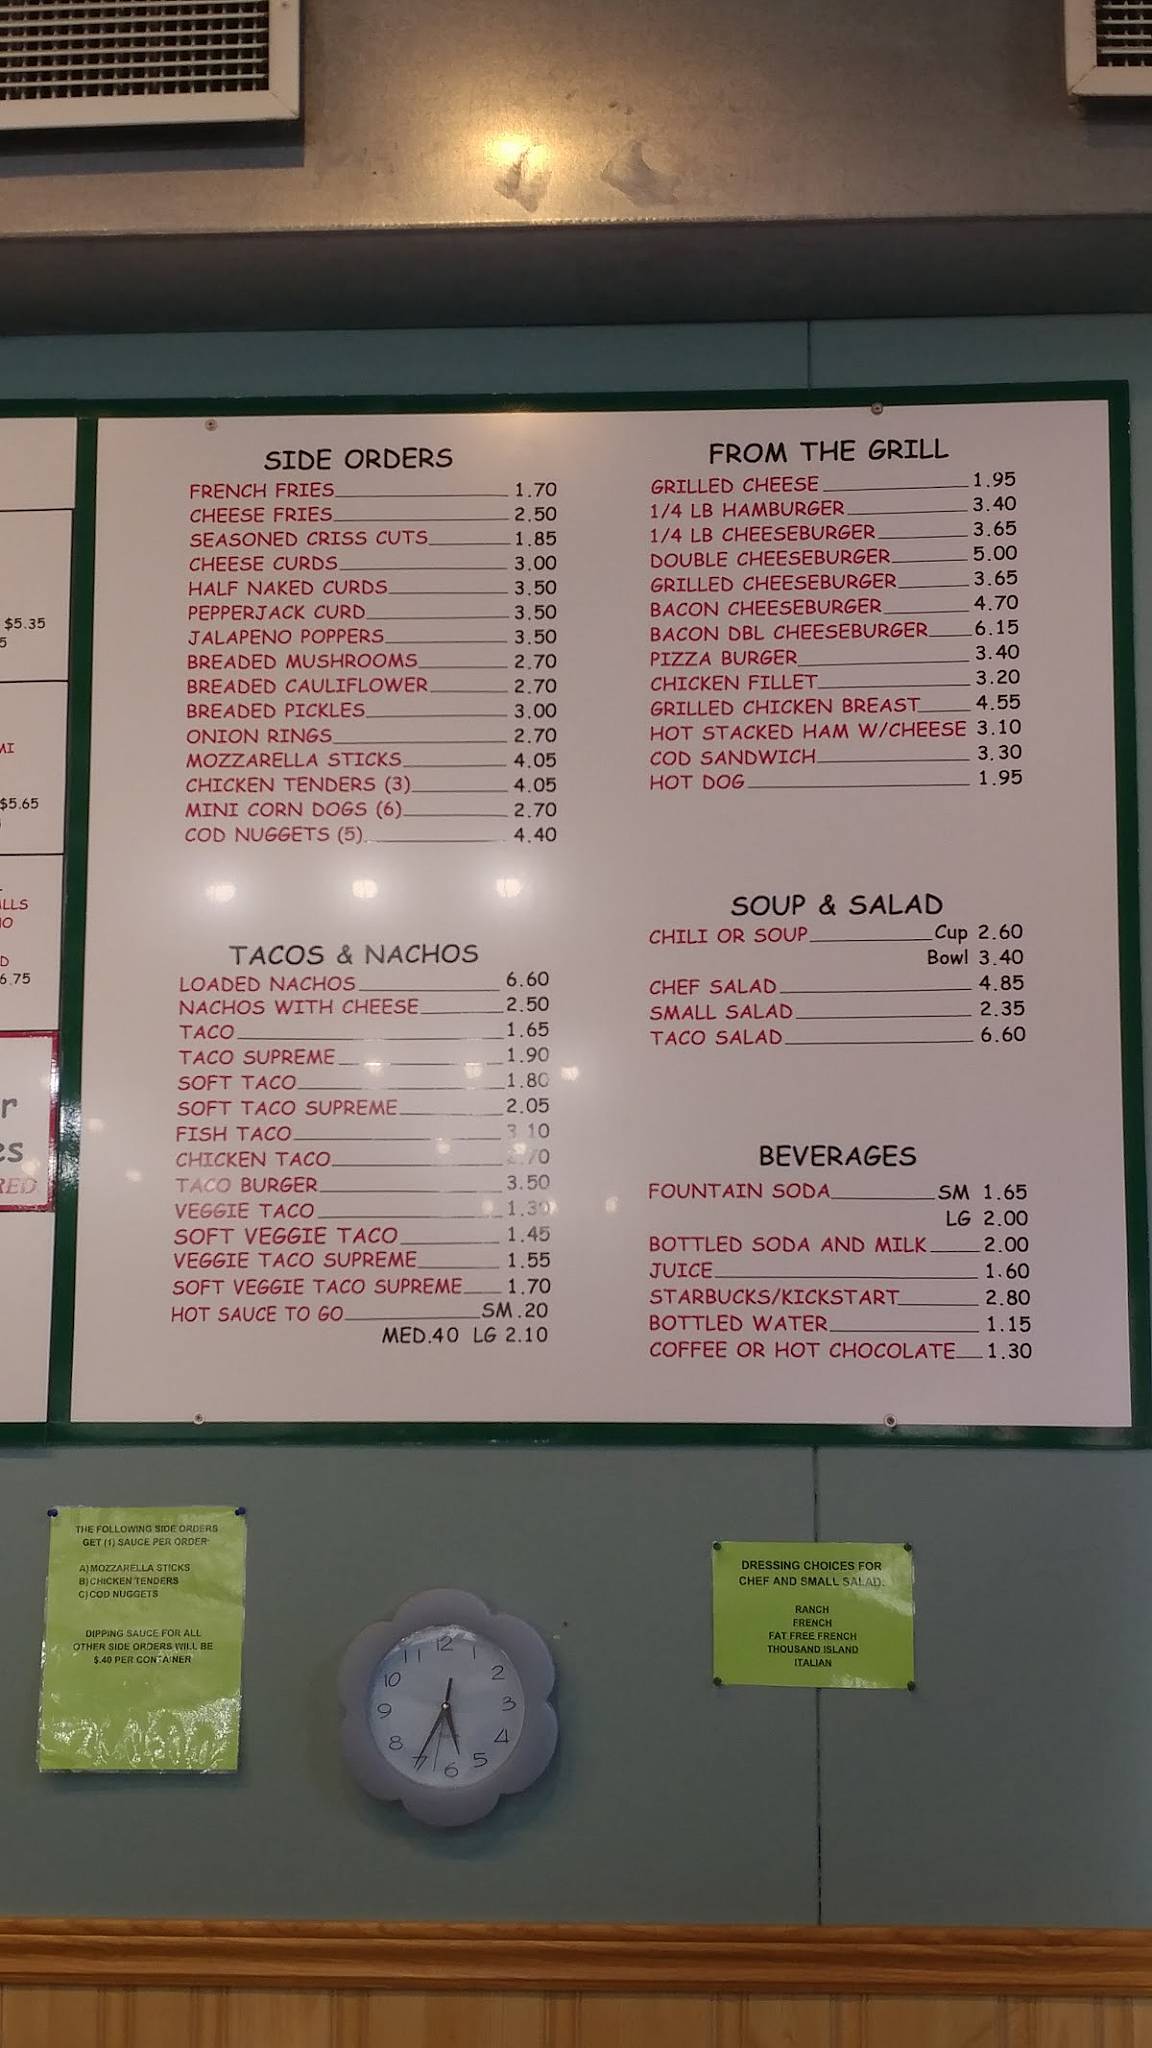 $5.35
5
MI
$5.65
LLS
IO
D
6.75
r
es
RED
SIDE ORDERS
FRENCH FRIES 1.70
CHEESE FRIES 2.50
SEASONED CRISS CUTS 1.85
CHEESE CURDS 3.00
HALF NAKED CURDS 3.50
PEPPERJACK CURD 3.50
JALAPENO POPPERS 3.50
BREADED MUSHROOMS 2.70
BREADED CAULIFLOWER 2.70
BREADED PICKLES 3.00
ONION RINGS 2.70
MOZZARELLA STICKS 4.05
CHICKEN TENDERS (3) 4.05
MINI CORN DOGS (6) 2.70
COD NUGGETS (5) 4.40
TACOS & NACHOS
LOADED NACHOS 6.60
NACHOS WITH CHEESE 2.50
TACO 1.65
TACO SUPREME 1.90
SOFT TACO 1.80
SOFT TACO SUPREME 2.05
FISH TACO 3.10
CHICKEN TACO
TACO BURGER 3.50
VEGGIE TACO
SOFT VEGGIE TACO 1.45
VEGGIE TACO SUPREME 1.55
SOFT VEGGIE TACO SUPREME 1.70
HOT SAUCE TO GO SM .20
MED .40 LG 2.10
FROM THE GRILL
GRILLED CHEESE 1.95
1/4 LB HAMBURGER 3.40
1/4 LB CHEESEBURGER 3.65
DOUBLE CHEESEBURGER 5.00
GRILLED CHEESEBURGER 3.65
BACON CHEESEBURGER 4.70
BACON DBL CHEESEBURGER 6.15
PIZZA BURGER 3.40
CHICKEN FILLET 3.20
GRILLED CHICKEN BREAST 4.55
HOT STACKED HAM W/CHEESE 3.10
COD SANDWICH 3.30
HOT DOG 1.95
SOUP & SALAD
CHILI OR SOUP Cup 2.60
Bowl 3.40
CHEF SALAD 4.85
SMALL SALAD 2.35
TACO SALAD 6.60
BEVERAGES
FOUNTAIN SODA SM 1.65
LG 2.00
BOTTLED SODA AND MILK 2.00
JUICE 1.60
STARBUCKS/KICKSTART 2.80
BOTTLED WATER 1.15
COFFEE OR HOT CHOCOLATE 1.30
THE FOLLOWING SIDE ORDERS
GET (1) SAUCE PER ORDER
A) MOZZARELLA STICKS
B) CHICKEN TENDERS
C) COD NUGGETS
DIPPING SAUCE FOR ALL
OTHER SIDE ORDERS WILL BE
$.40 PER CONTAINER
12 1 2 3 4 5 6 7 8 9 10 11
DRESSING CHOICES FOR
CHEF AND SMALL SALAD:
RANCH
FRENCH
FAT FREE FRENCH
THOUSAND ISLAND
ITALIAN